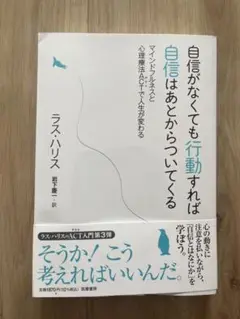 自信がなくても行動すれば
自信はあとからついてくる
マインドフルネスと
心理療法ACTで人生が変わる
ラス・ハリス
岩下慶一 訳
心の動きに
注意を払いながら、
「自信とはなにか」を
学ぼう。
ラス・ハリスのACT入門第3弾
そうか!こう
考えればいいんだ。
筑摩書房